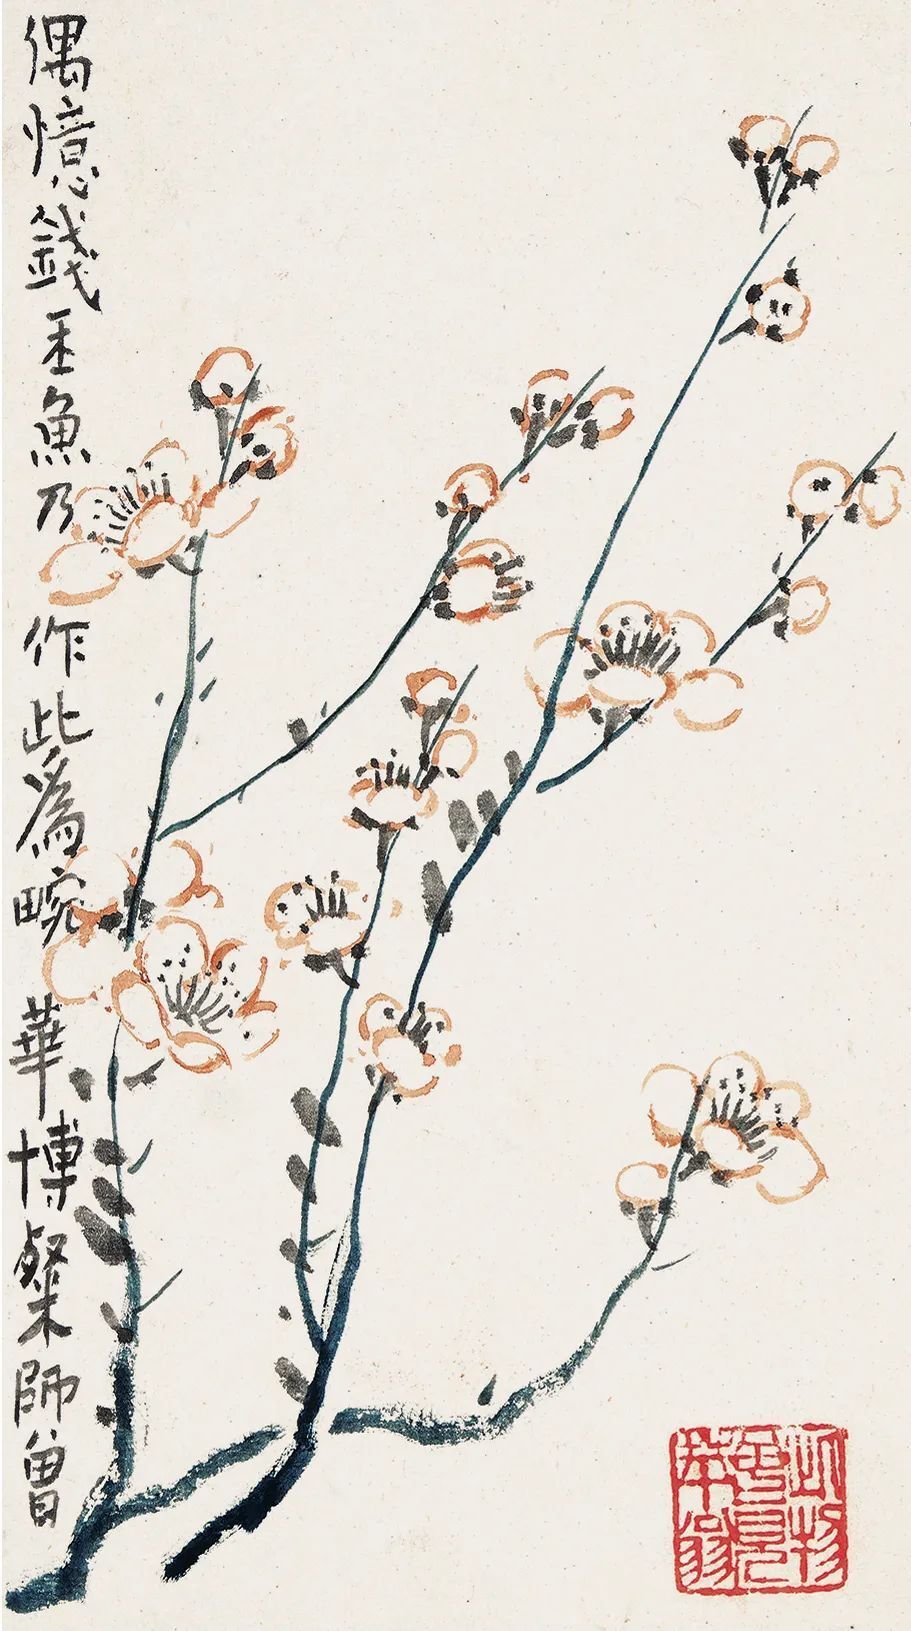 偶憶錢玉魚乃作此為畹華博粲師曾